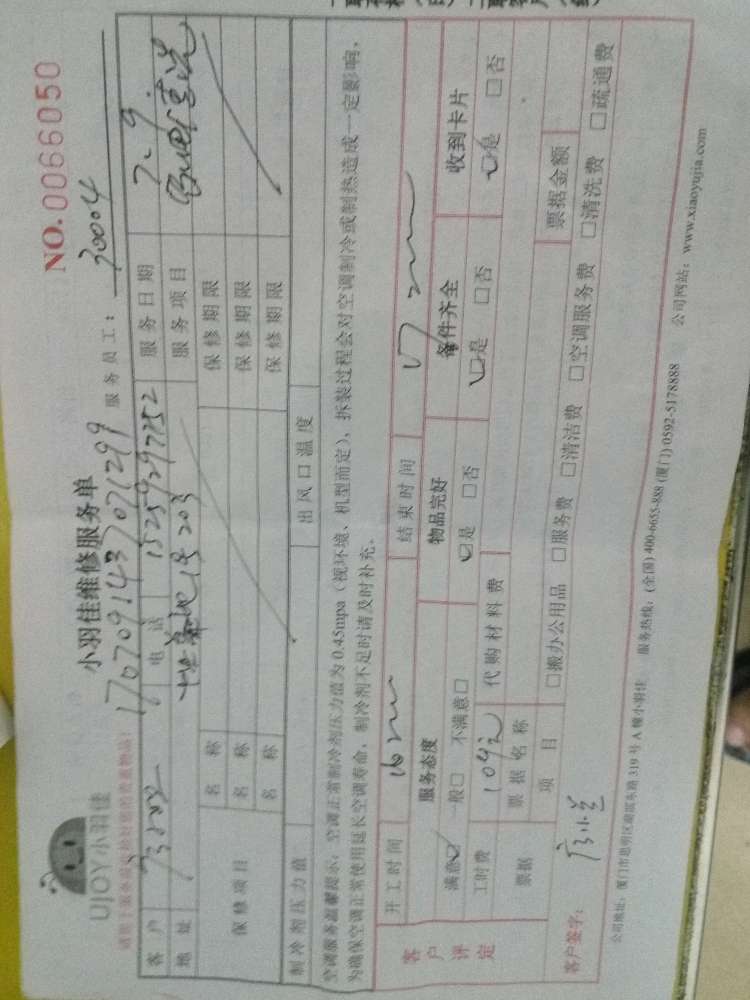 UJOY小羽佳
小羽佳维修服务单
NO.0066050
1707091437071299
服务员工：30004
客户
电话 15259297252
服务日期 7.9
地址
203
服务项目
保修项目
名称
保修期限
名称
保修期限
名称
保修期限
制冷剂压力值
出风口温度
空调服务温馨提示：空调正常制冷剂压力值为0.45mpa（视环境、机型而定），拆装过程会对空调制冷或制热造成一定影响，
为确保空调正常使用延长空调寿命，制冷剂不足时请及时补充。
客户评定
开工时间 16
结束时间 17
服务态度
物品完好
备件齐全
收到卡片
满意☑ 一般□ 不满意□
☑是 □否
☑是 □否
☑是 □否
工时费 109元
代购材料费
票据
票据名称
票据金额
项目
□搬办公用品 □服务费 □清洁费 □空调服务费 □清洗费 □疏通费
客户签字：
公司地址：厦门市思明区湖滨东路319号A幢小羽佳 服务热线：(全国) 400-6655-888 (厦门) 0592-5178888 公司网站：www.xiaoyujia.com